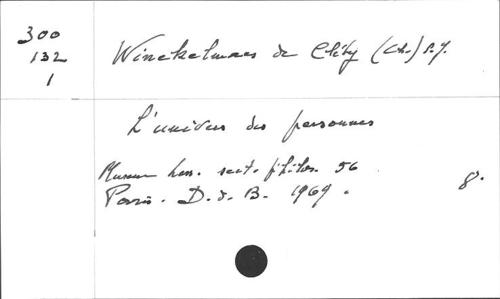 300
132
1
Winckelmans de Cléty (Ch.) S.J.
L'univers des personnes
Museum Less. sect. philos. 56
Paris. D.d.B. 1969.
8°